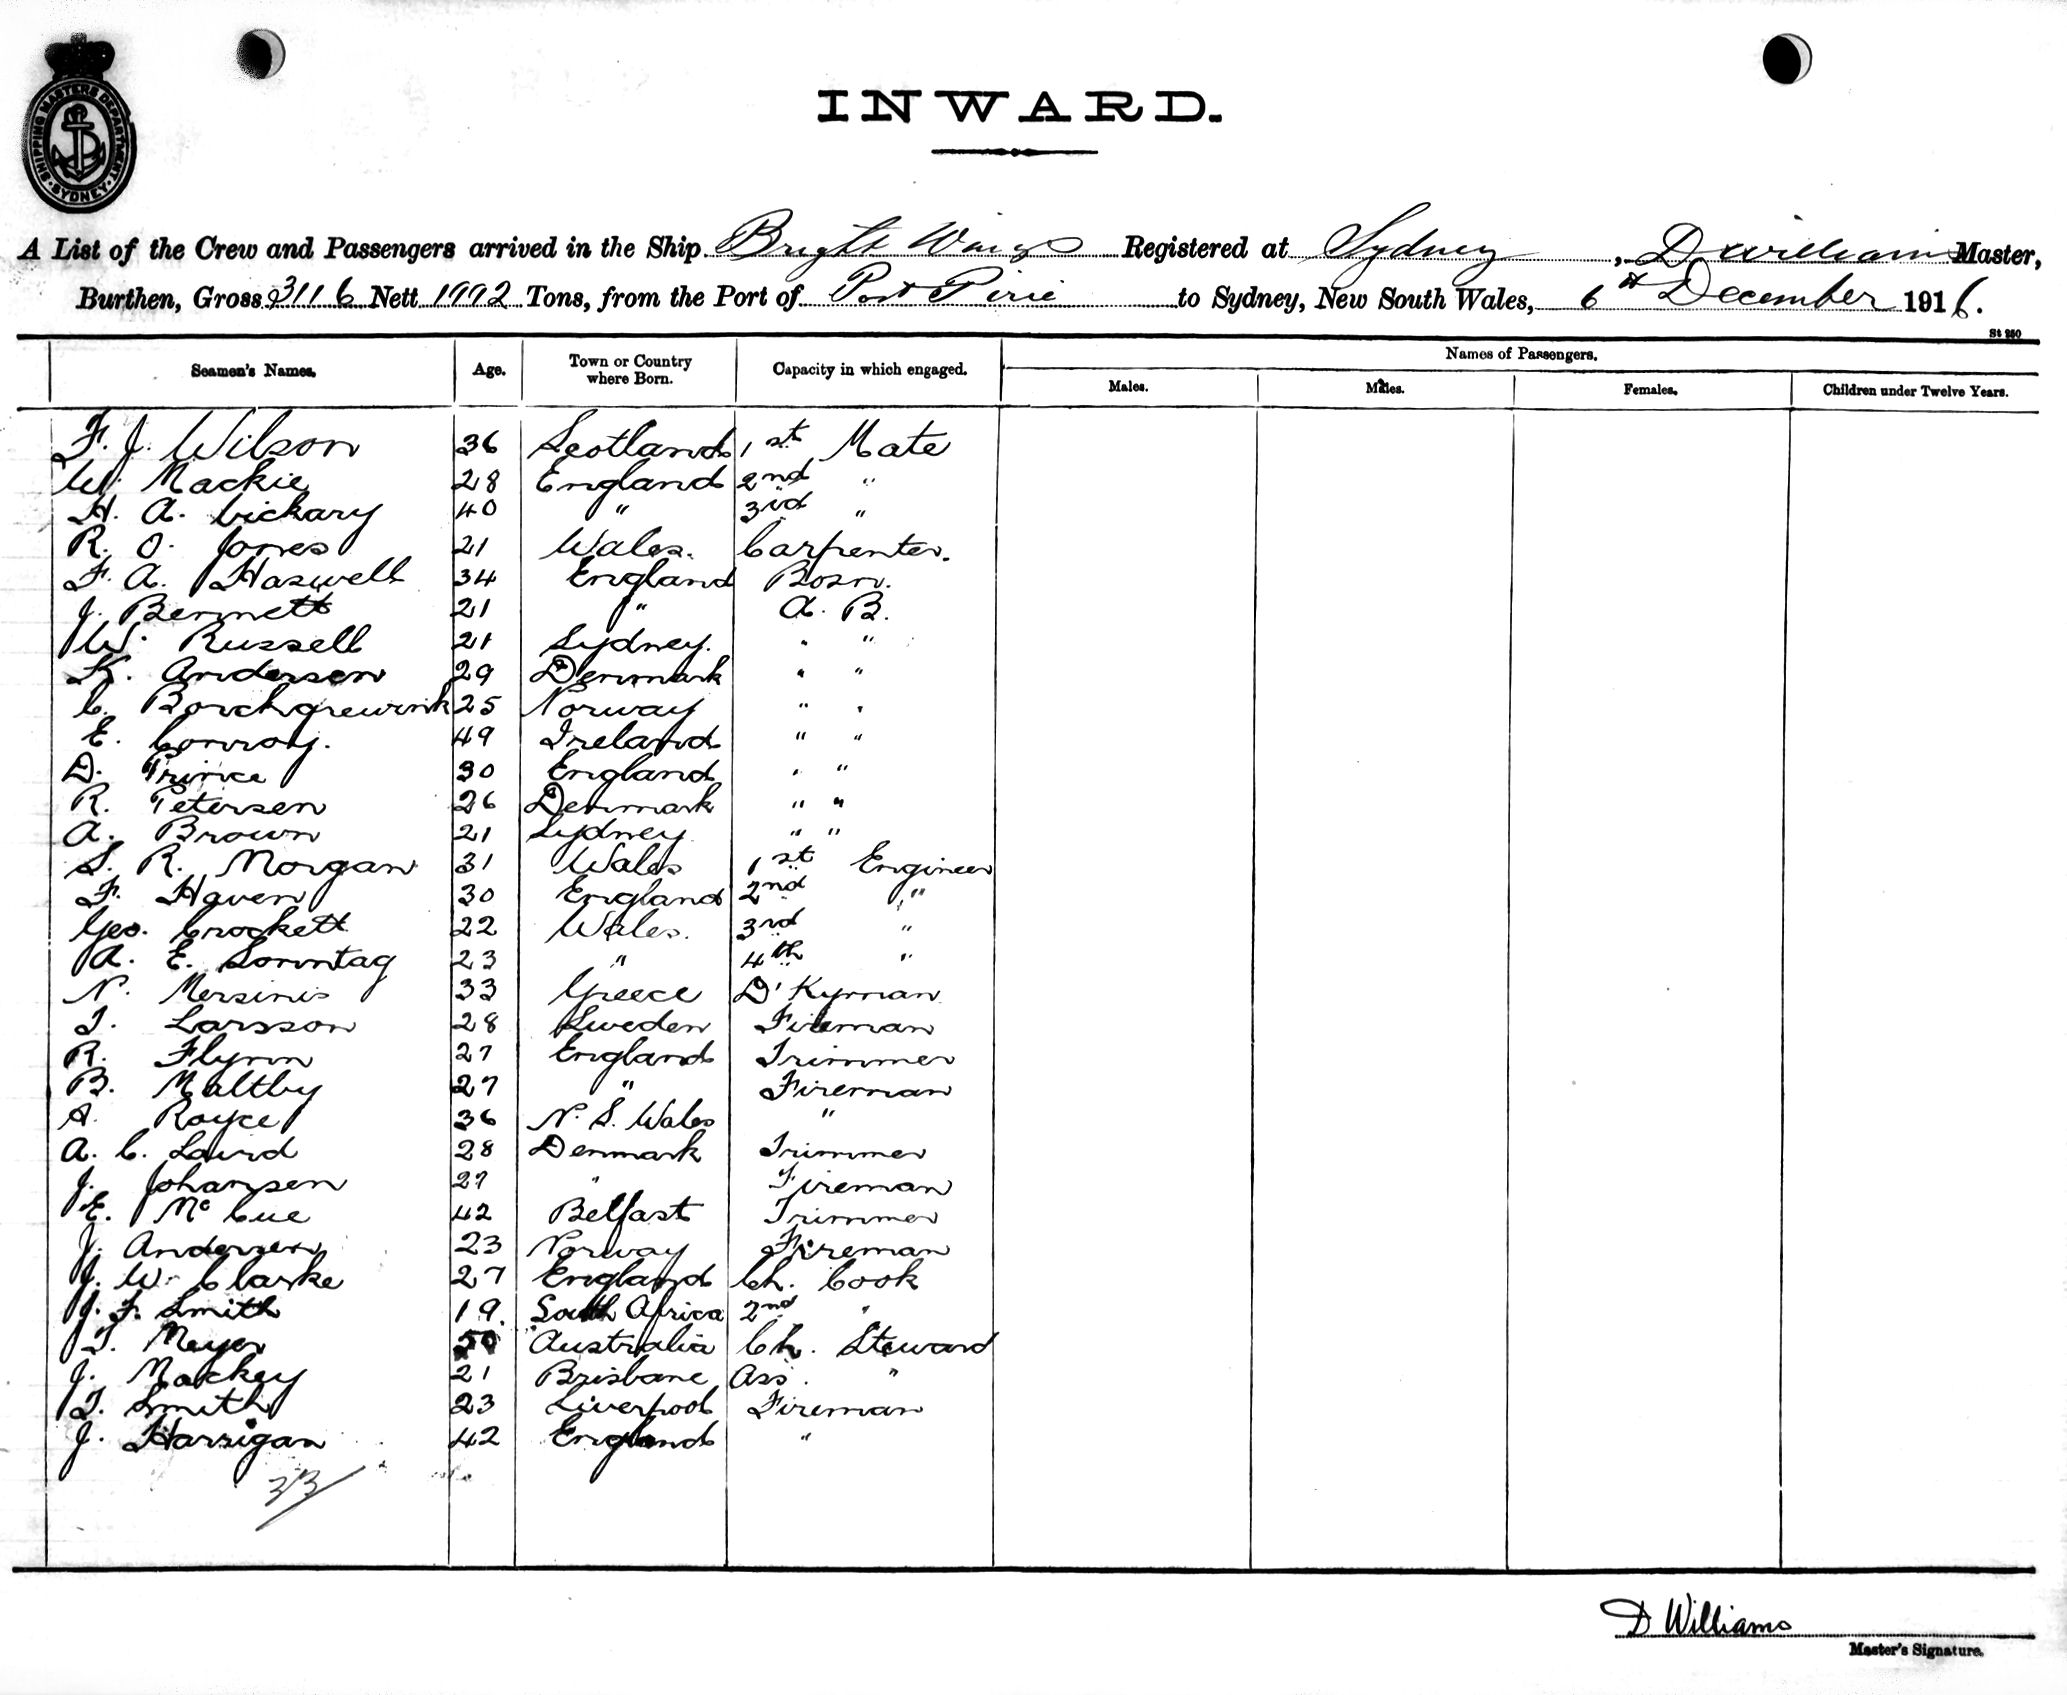 SHIPPING MASTERS DEPARTMENT
SYDNEY
INWARD.
A List of the Crew and Passengers arrived in the Ship Bright Wings Registered at Sydney, D Williams Master,
Burthen, Gross 3116 Nett 1992 Tons, from the Port of Port Pirie to Sydney, New South Wales, 6th December 1916.
St 250
Seamen's Names. Age. Town or Country where Born. Capacity in which engaged. Names of Passengers.
Males. Males. Females. Children under Twelve Years.
F. J. Wilson 36 Scotland 1st Mate
W. Mackie 28 England 2nd "
H. A. Vickary 40 " 3rd "
R. O. Jones 21 Wales. Carpenter.
F. A. Haswell 34 England Bosn.
J. Bennett 21 " A. B.
W. Russell 21 Sydney. " "
K. Andersen 29 Denmark " "
C. Borchgrewink 25 Norway " "
E. Conroy. 49 Ireland " "
D. Prince 30 England " "
R. Petersen 26 Denmark " "
A. Brown 21 Sydney " "
S. R. Morgan 31 Wales 1st Engineer
F. Haven 30 England 2nd "
Geo. Crockett 22 Wales. 3rd "
A. E. Sonntag 23 " 4th "
N. Mersinis 33 Greece D'Kyman
T. Larsson 28 Sweden Fireman
R. Flynn 27 England Trimmer
B. Maltby 27 " Fireman
A. Royce 36 N. S. Wales "
A. C. Laird 28 Denmark Trimmer
J. Johansen 27 " Fireman
E. McCue 42 Belfast Trimmer
J. Anderzen 23 Norway Fireman
J. W. Clarke 27 England Ch. Cook
J. F. Smith 19. South Africa 2nd "
T. Meyer Australia Ch. Steward
J. Mackey 21 Brisbane Ass. "
T. Smith 23 Liverpool Fireman
J. Harrigan 42 England "
33
D Williams
Master's Signature.